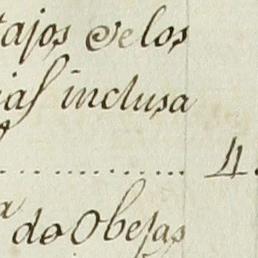 tajos de los
ial inclusa
4.
do Obejas